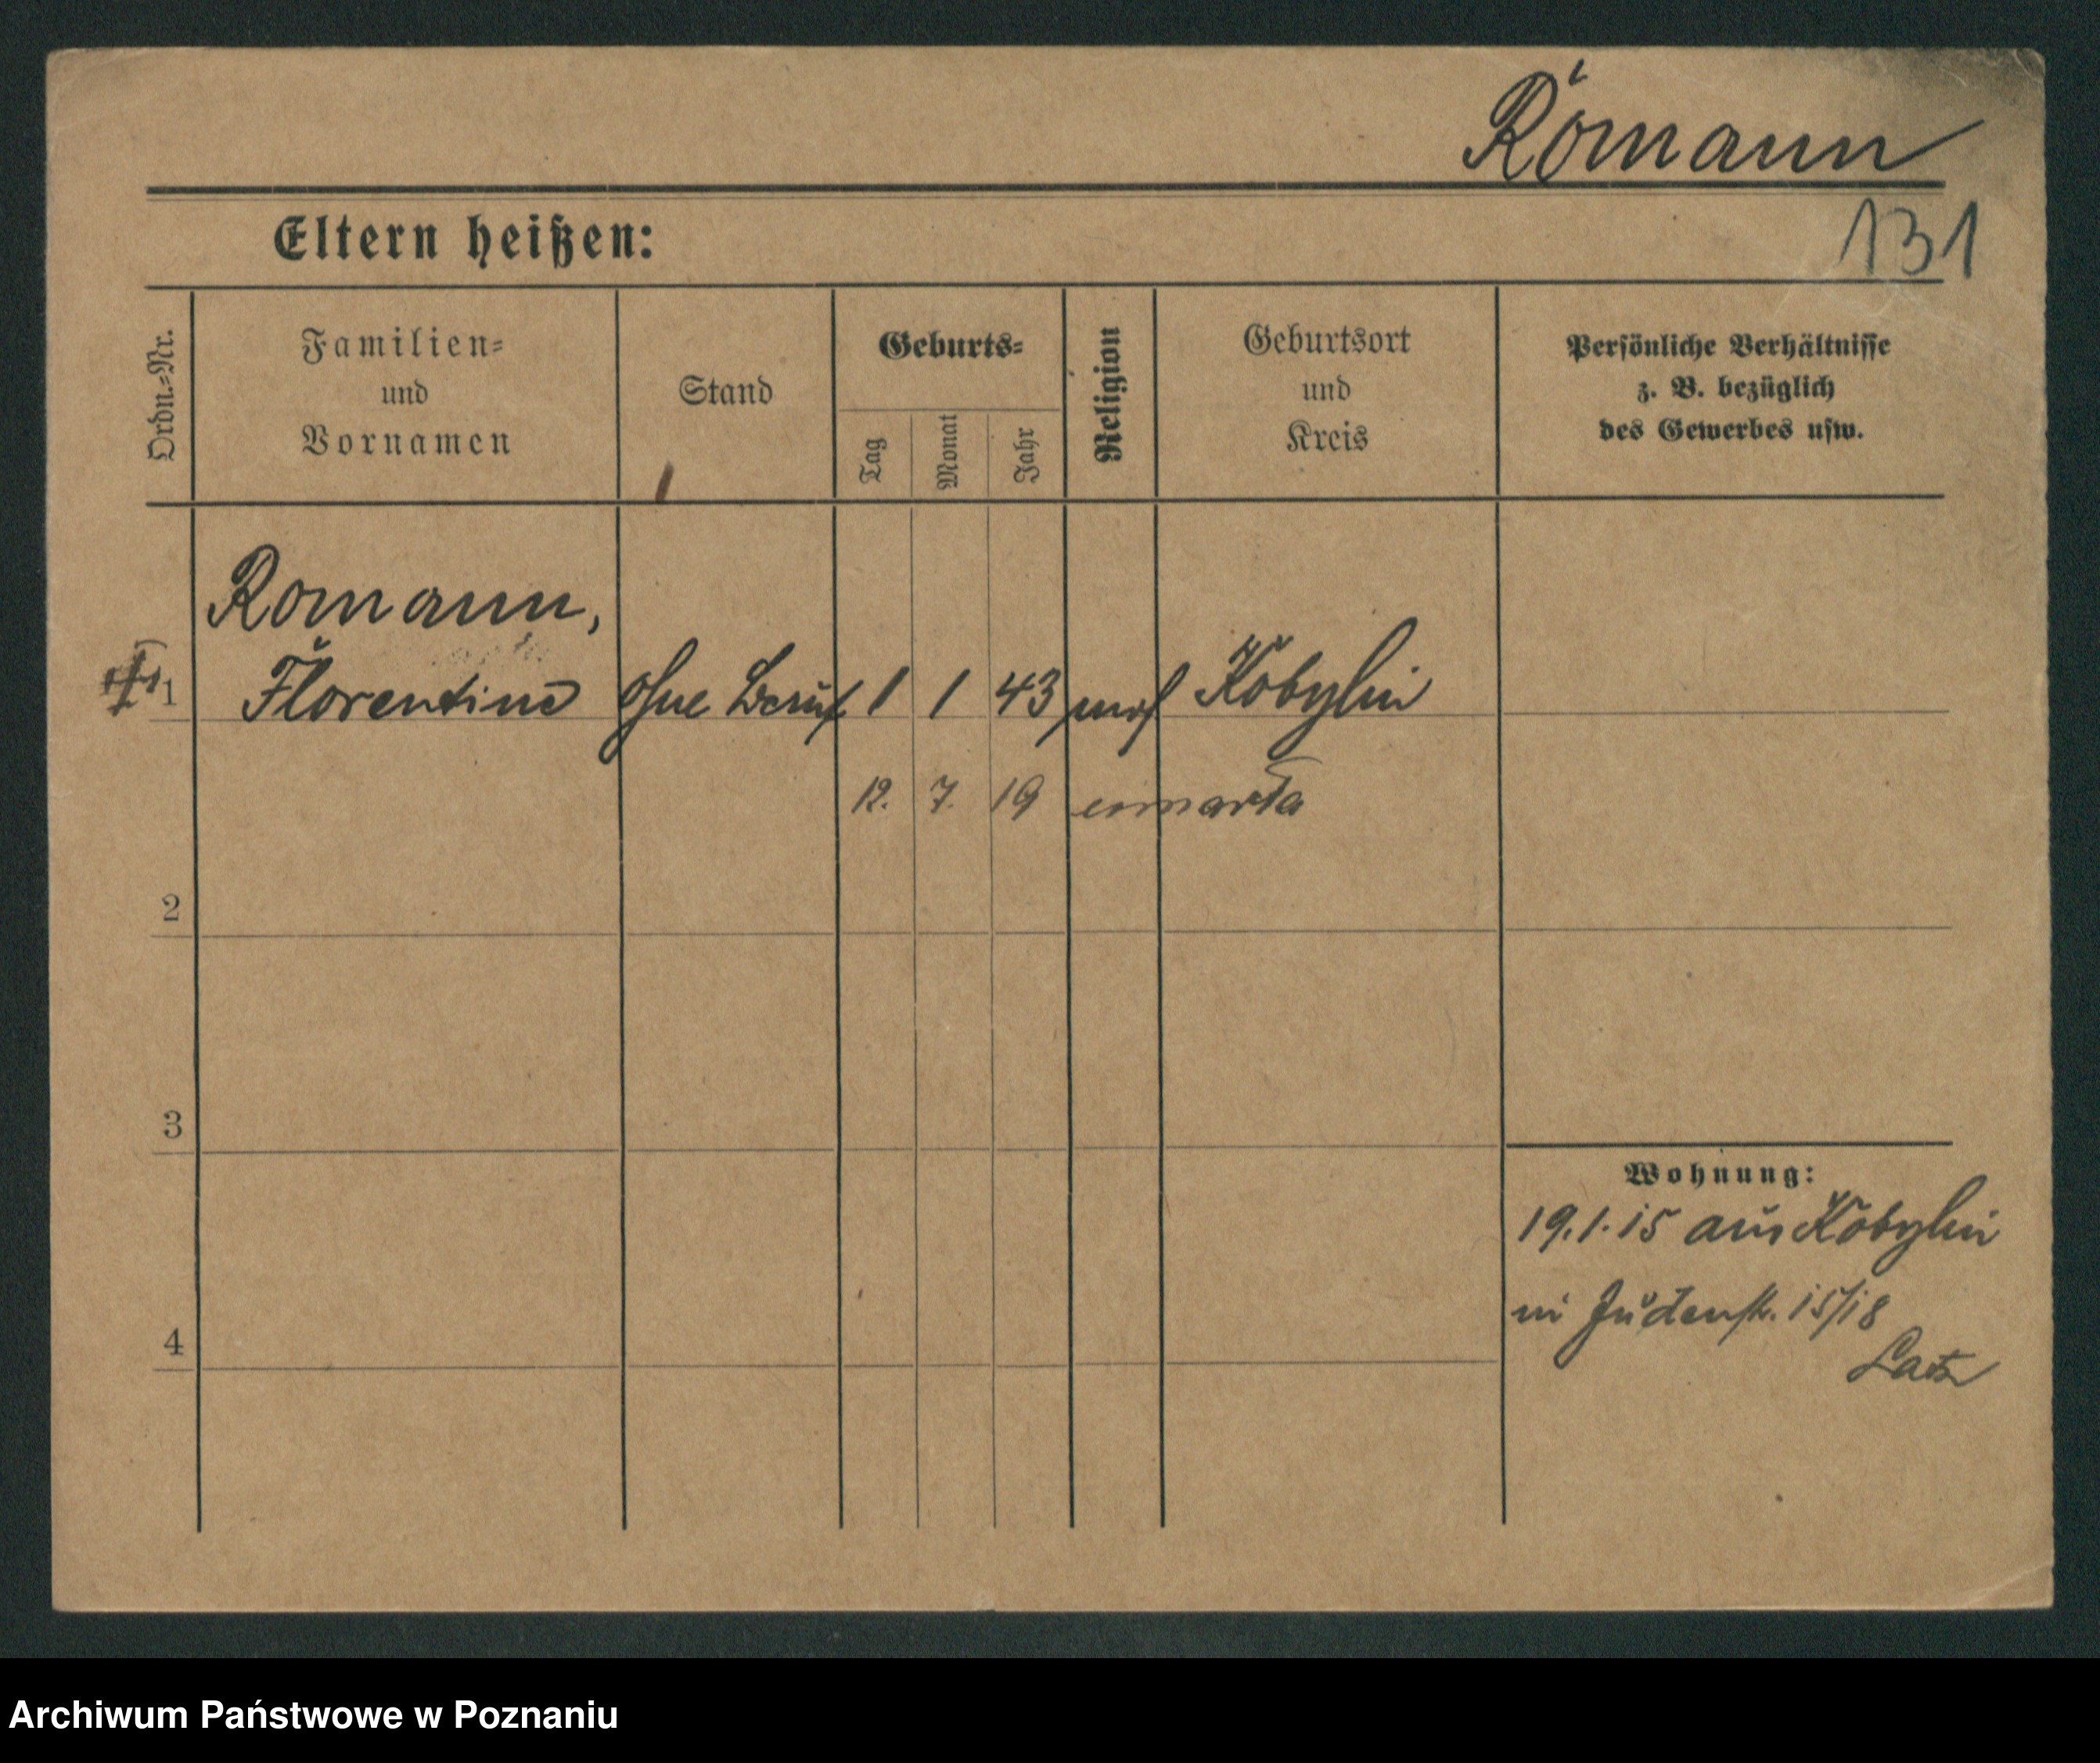 Romann
131
Eltern heißen:
Ordn.-Nr.
Familien-
und
Vornamen
Stand
Geburts-
Tag
Monat
Jahr
Religion
Geburtsort
und
Kreis
Persönliche Verhältnisse
z. B. bezüglich
des Gewerbes usw.
Romann,
1 Florentine ohne Beruf 1 1 43 mos Kobylin
12. 7. 19 umarła
2
3
4
Wohnung:
19.1.15 aus Kobylin
in Judenstr. 15/18
Latz
Archiwum Państwowe w Poznaniu